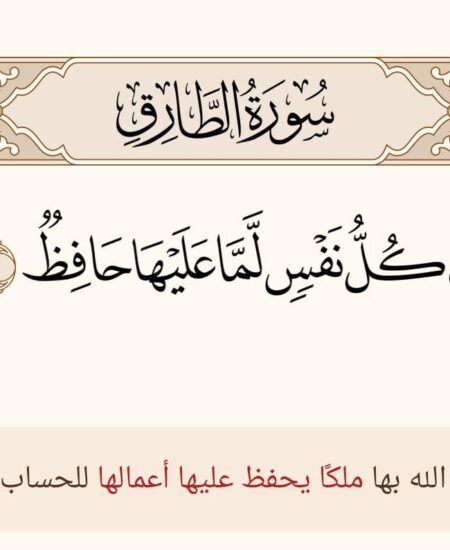 سُورَةُ الطَّارِقِ
كُلُّ نَفْسٍ لَّمَّا عَلَيْهَا حَافِظٌ
الله بها ملكًا يحفظ عليها أعمالها للحساب